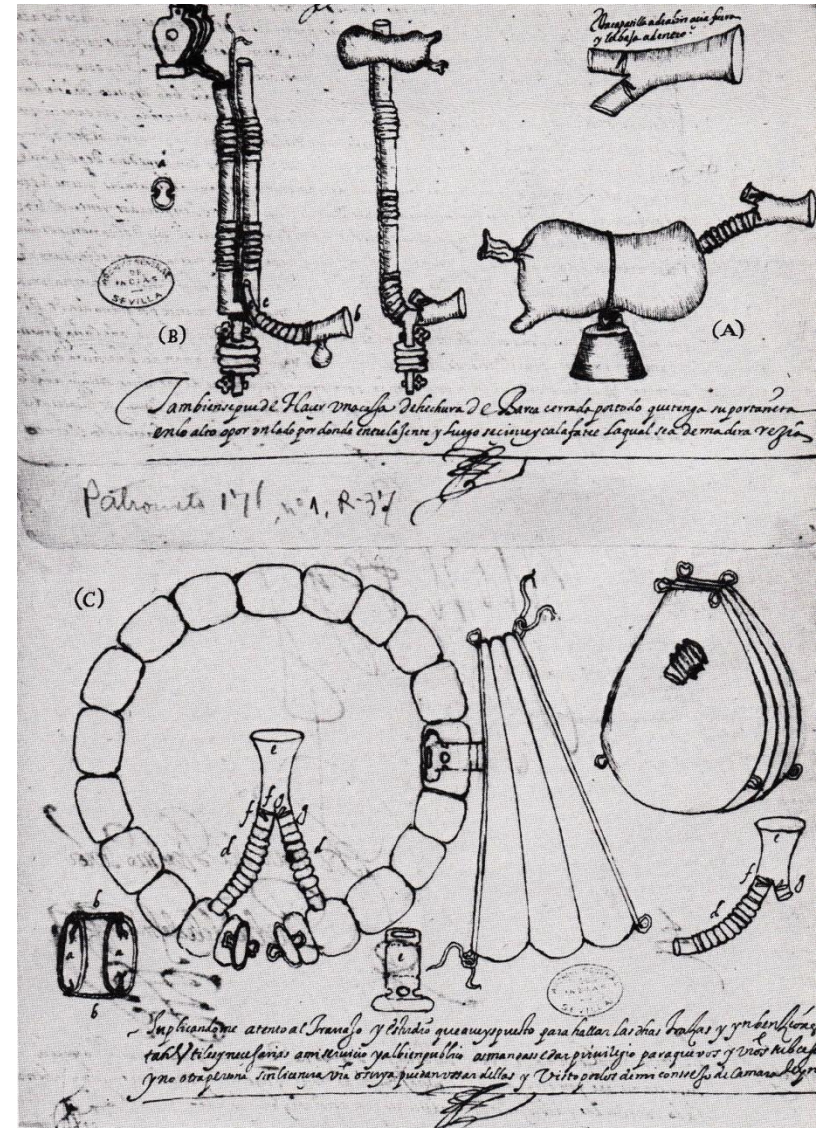 Una capatilla adeabrir acia fuera
y la baja adentro
a
ARCHIVO GENERAL DE INDIAS SEVILLA
c
b
(B)
(A)
Tambien se puede Hacer una caxa de hechura de Barca cerrada por todo que tenga su portañuela
en lo alto o por un lado por donde entre la Jente y Luego se cierre y calafatee la qual sea de madera rezia
Patronato 171, nº 1, R-37
(C)
e
f g
f g
d d
b
a a
b
e
e
f g
d
SEVILLA
Suplicandome atento al Travajo y estudio que aveys puesto para hallar las dhas trazas y ynbenciones
tan Utiles y necesarias a mi servicio y al bien publico os mandase dar privilegio para que vos y vros
y no otra persona sin licencia vra o suya puedan usar dellas y Visto por los de mi consejo de Camara